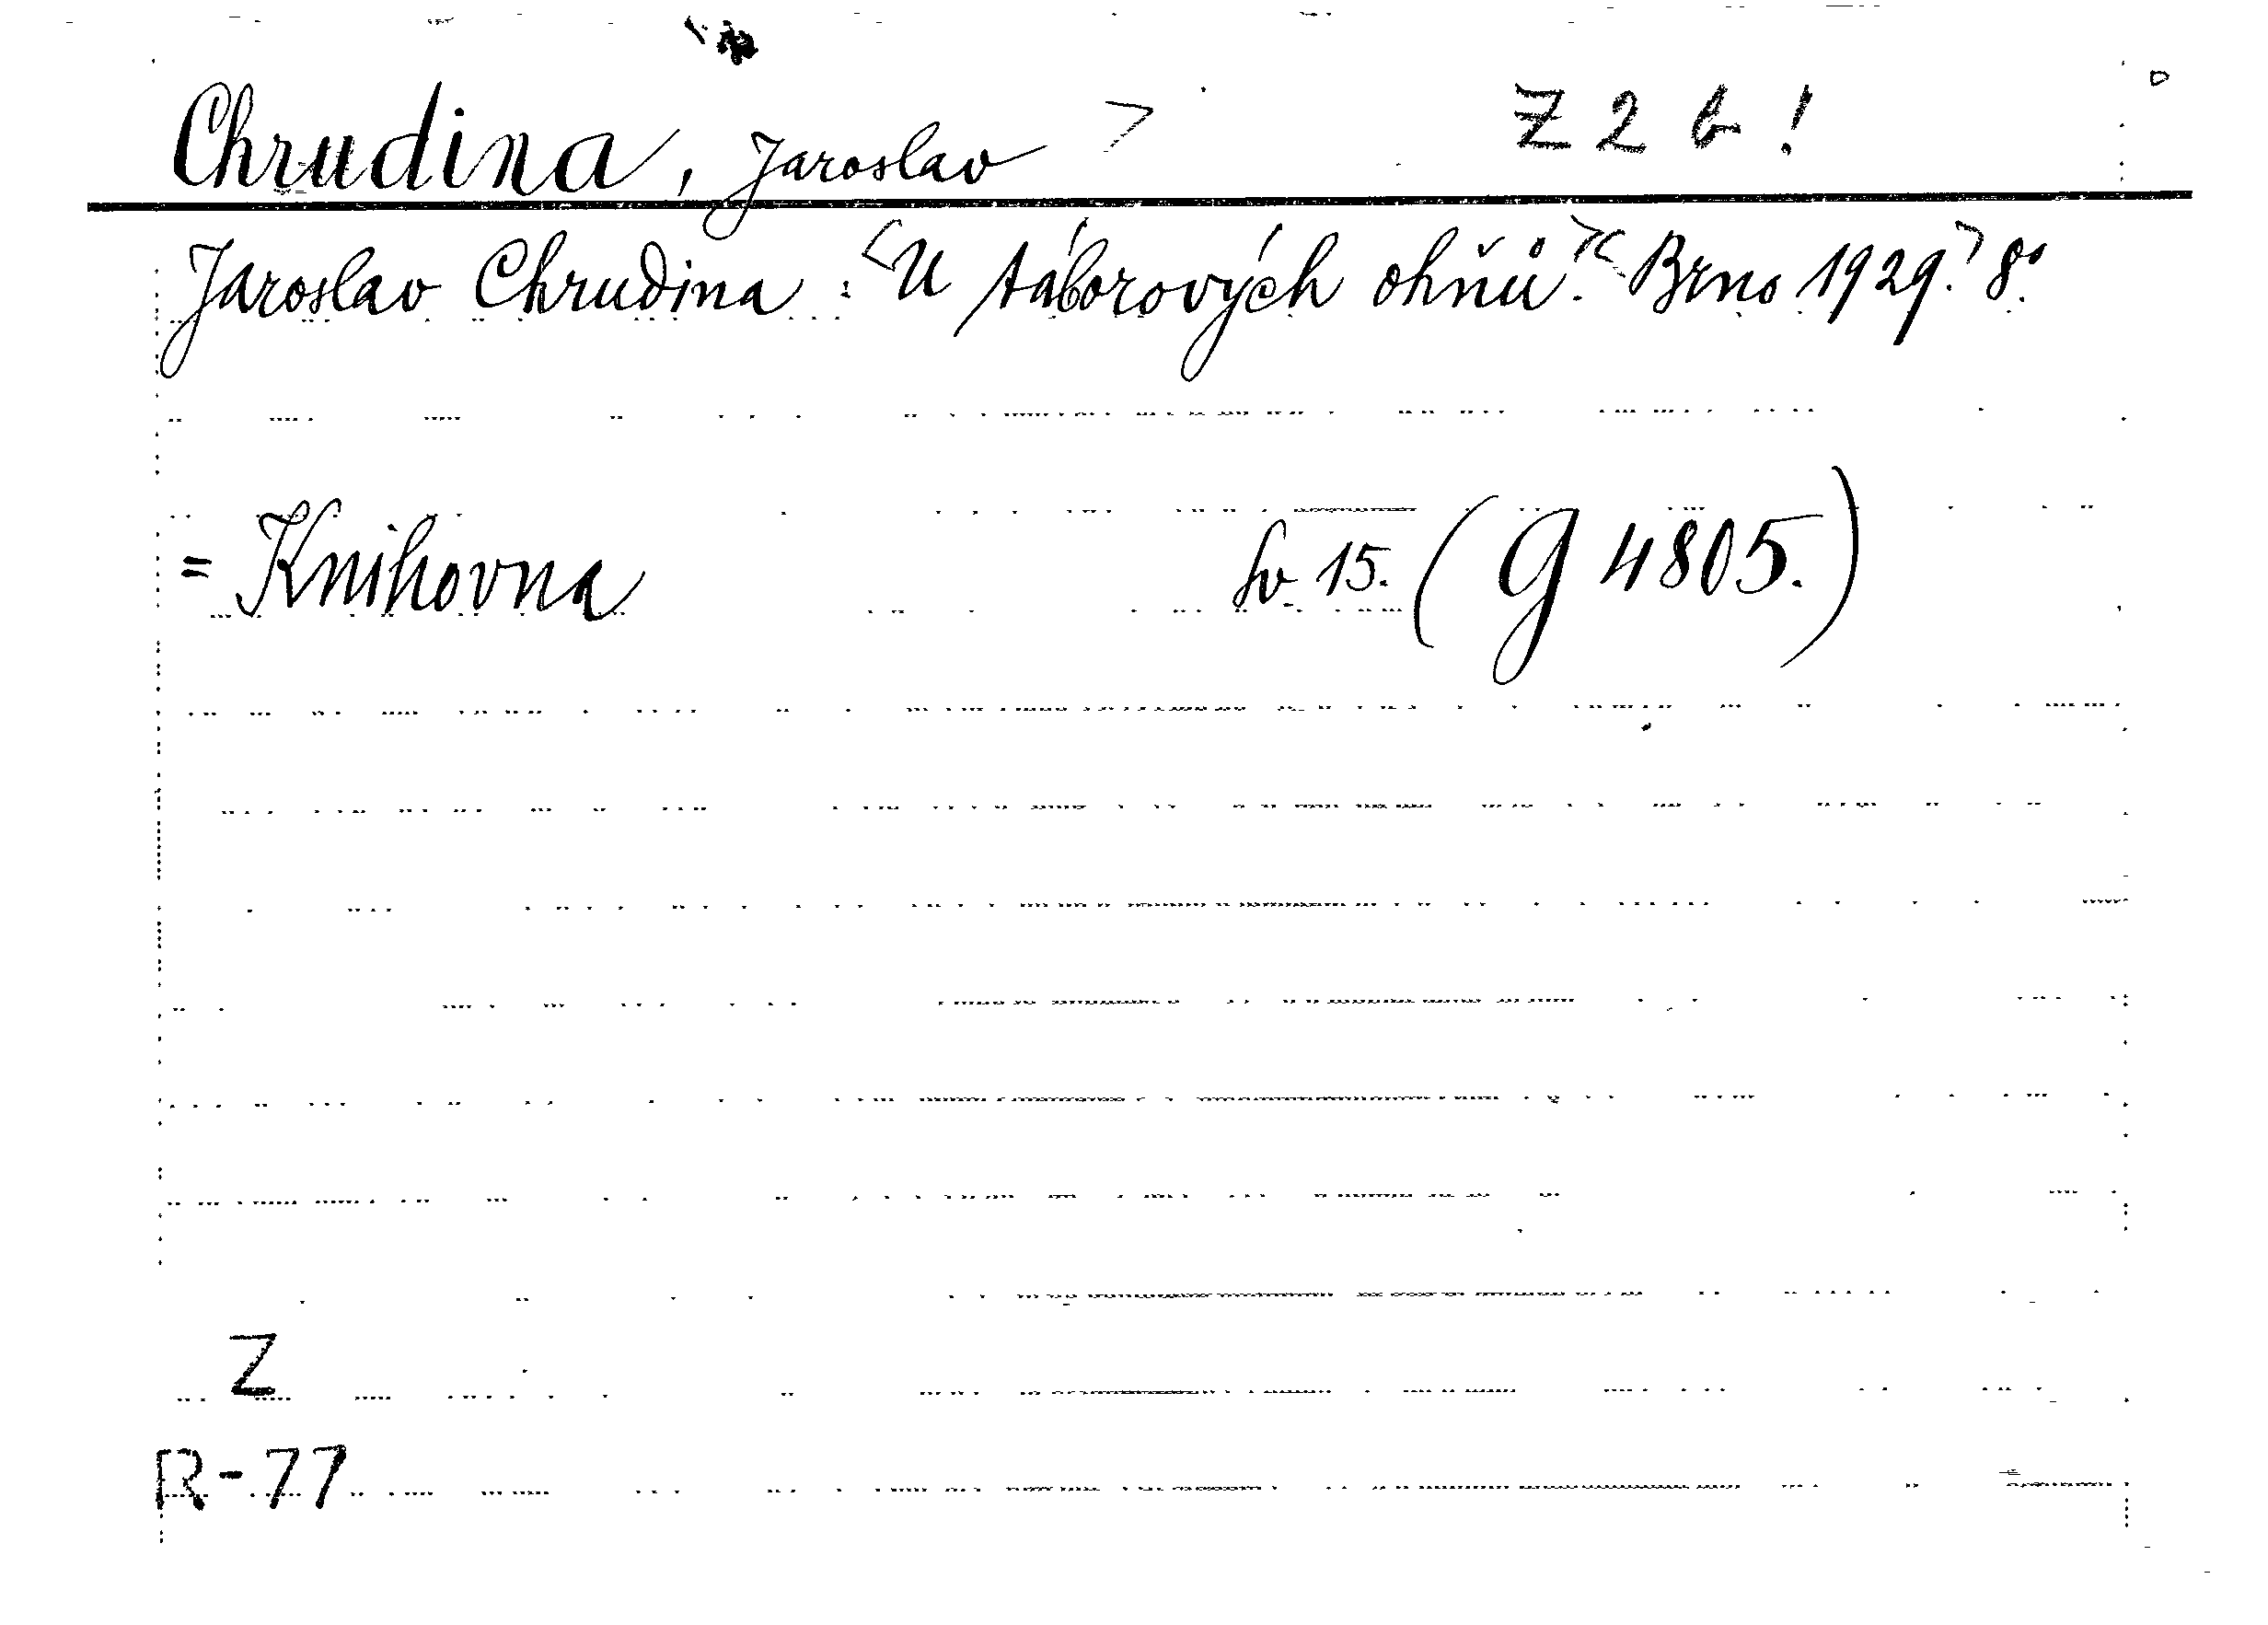 Chrudina, Jaroslav > Z 2 b !
Jaroslav Chrudina : <U táborových ohňů.>< Brno 1929.> 8°.
= Knihovna sv 15. (G 4805.)
Z
R-77